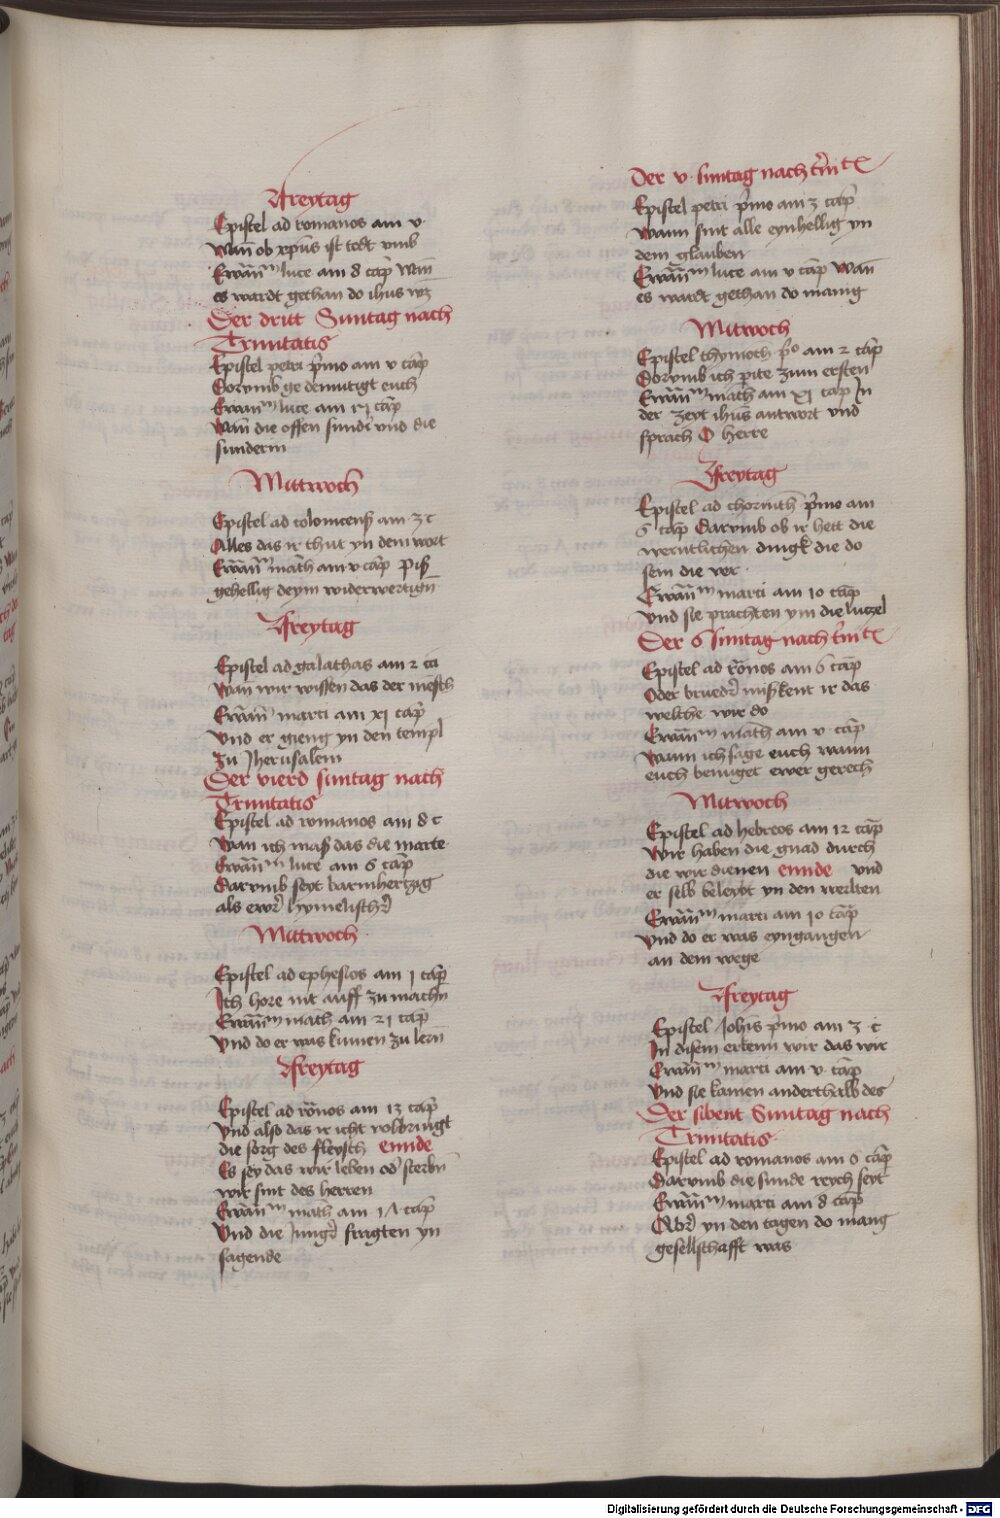 Freytag
Epistel ad romanos am v·
Wan̄ ob xp̄us ist todt vmb
Ewāng̅m luce am 8 cap̄ Wān
es wardt gethan do ihus wz
Der dritt Suntag nach
Trinitatis
Epistel petri p̄mo am v cap̄
Dorvmb ge demutigt euch
Ewāng̅m luce am 15 cap̄
Wan̄ die offen sundr̄ vnd die
sunderin
Mittwoch
Epistel ad colonicens̄ am ·3 c
Alles das ir thut yn dem wort
Ewāng̅m math̄ am v cap̄ Piß
gehellig deym widerwertign̄
Freytag
Epistel ad galathas am 2 ca
Wan wir wissen das der mēsch
Ewāng̅m marci am xj cap̄
Vnd er gieng yn den templ
Zu Jherusalem
Der vierd suntag nach
Trinitatis
Epistel ad romanos am 8 c
Wan ich maß das die marte
Ewāng̅m luce am 6 cap̄
Darvmb seyt barmhertzig
als ewr̄ hymelischr̄
Mittwoch
Epistel ad ephesios am 1 cap̄
Ich hore nit auff zu machn̄
Ewāng̅m math am 21 cap̄
Vnd do er was kumen zu lern̄
Freytag
Epistel ad rōnos am 13 cap̄
Vnd also das ir icht volbringt
die sorg des fleysch ennde
Es sey das wir leben od̄ sterbn̄
wir sint des herren
Ewāng̅m math̄ am 1Λ cap̄
Vnd die Jungr̄ fragten yn
sagende
Der v· suntag nach tr̄initꝫ
Epistel petri p̄mo am 3 cap̄
Wann sint alle eynhellig yn
dem glauben
Ewāng̅m luce am v cap̄ Wan̄
es wardt gethan do manig
Mitwoch
Epistel thymoth· p̄o am 2 cap̄
Dorvmb ich pite zum ersten
Ewāng̅m math̄ am xj cap̄ In
der zeyt ihūs antwort vnd
sprach O herre
Freytag
Epistel ad chorinth̄ p̄mo am
6 cap̄ Darvmb ob ir hett die
werntlichen dingk die do
sein die ver·
Ewāng̅m marci am 10 cap̄
Vnd sie prachten ym die lutzel
Der 6 suntag nach tr̄initꝫ
Epistel ad rōnos am 6 cap̄
Oder bruedr̄ mißkent ir das
welche wir do
Ewāng̅m math̄ am v· cap̄
Wann ich sage euch wann
euch benuget ewer gerech̄
Mitwoch
Epistel ad hebreos am 12 cap̄
Wir haben die gnad durch
die wir dienen ennde vnd
er selb beleybt yn den wellten
Ewāng̅m marci am 10 cap̄
Vnd do er was eyngangen
an dem wege
Freytag
Epistel Johis p̄mo am 3 c̄
In disem erkenn wir das wir
Ewāng̅m marci am v· cap̄
Vnd sie kamen anderthalb des
Der sibent Suntag nach
Trinitatis
Epistel ad romanos am 6 cap̄
Darvmb die sunde reych seyt
Ewāng̅m marci am 8 cap̄
Abr̄ yn den tagen do mang
gesellschafft was
Digitalisierung gefördert durch die Deutsche Forschungsgemeinschaft - DFG